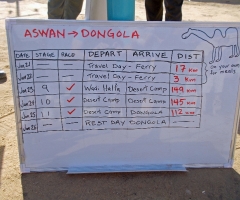 ASWAN → DONGOLA
DATE STAGE RACE DEPART ARRIVE DIST
Jan 21 Travel Day - Ferry 17 KM
Jan 22 Travel Day - Ferry 3 KM
Jan 23 9 ✓ Wadi Halfa Desert Camp 149 KM
Jan 24 10 ✓ Desert Camp Desert Camp 145 KM
Jan 25 11 ✓ Desert Camp DONGOLA 112 KM
Jan 26 REST DAY DONGOLA
on your own
for meals